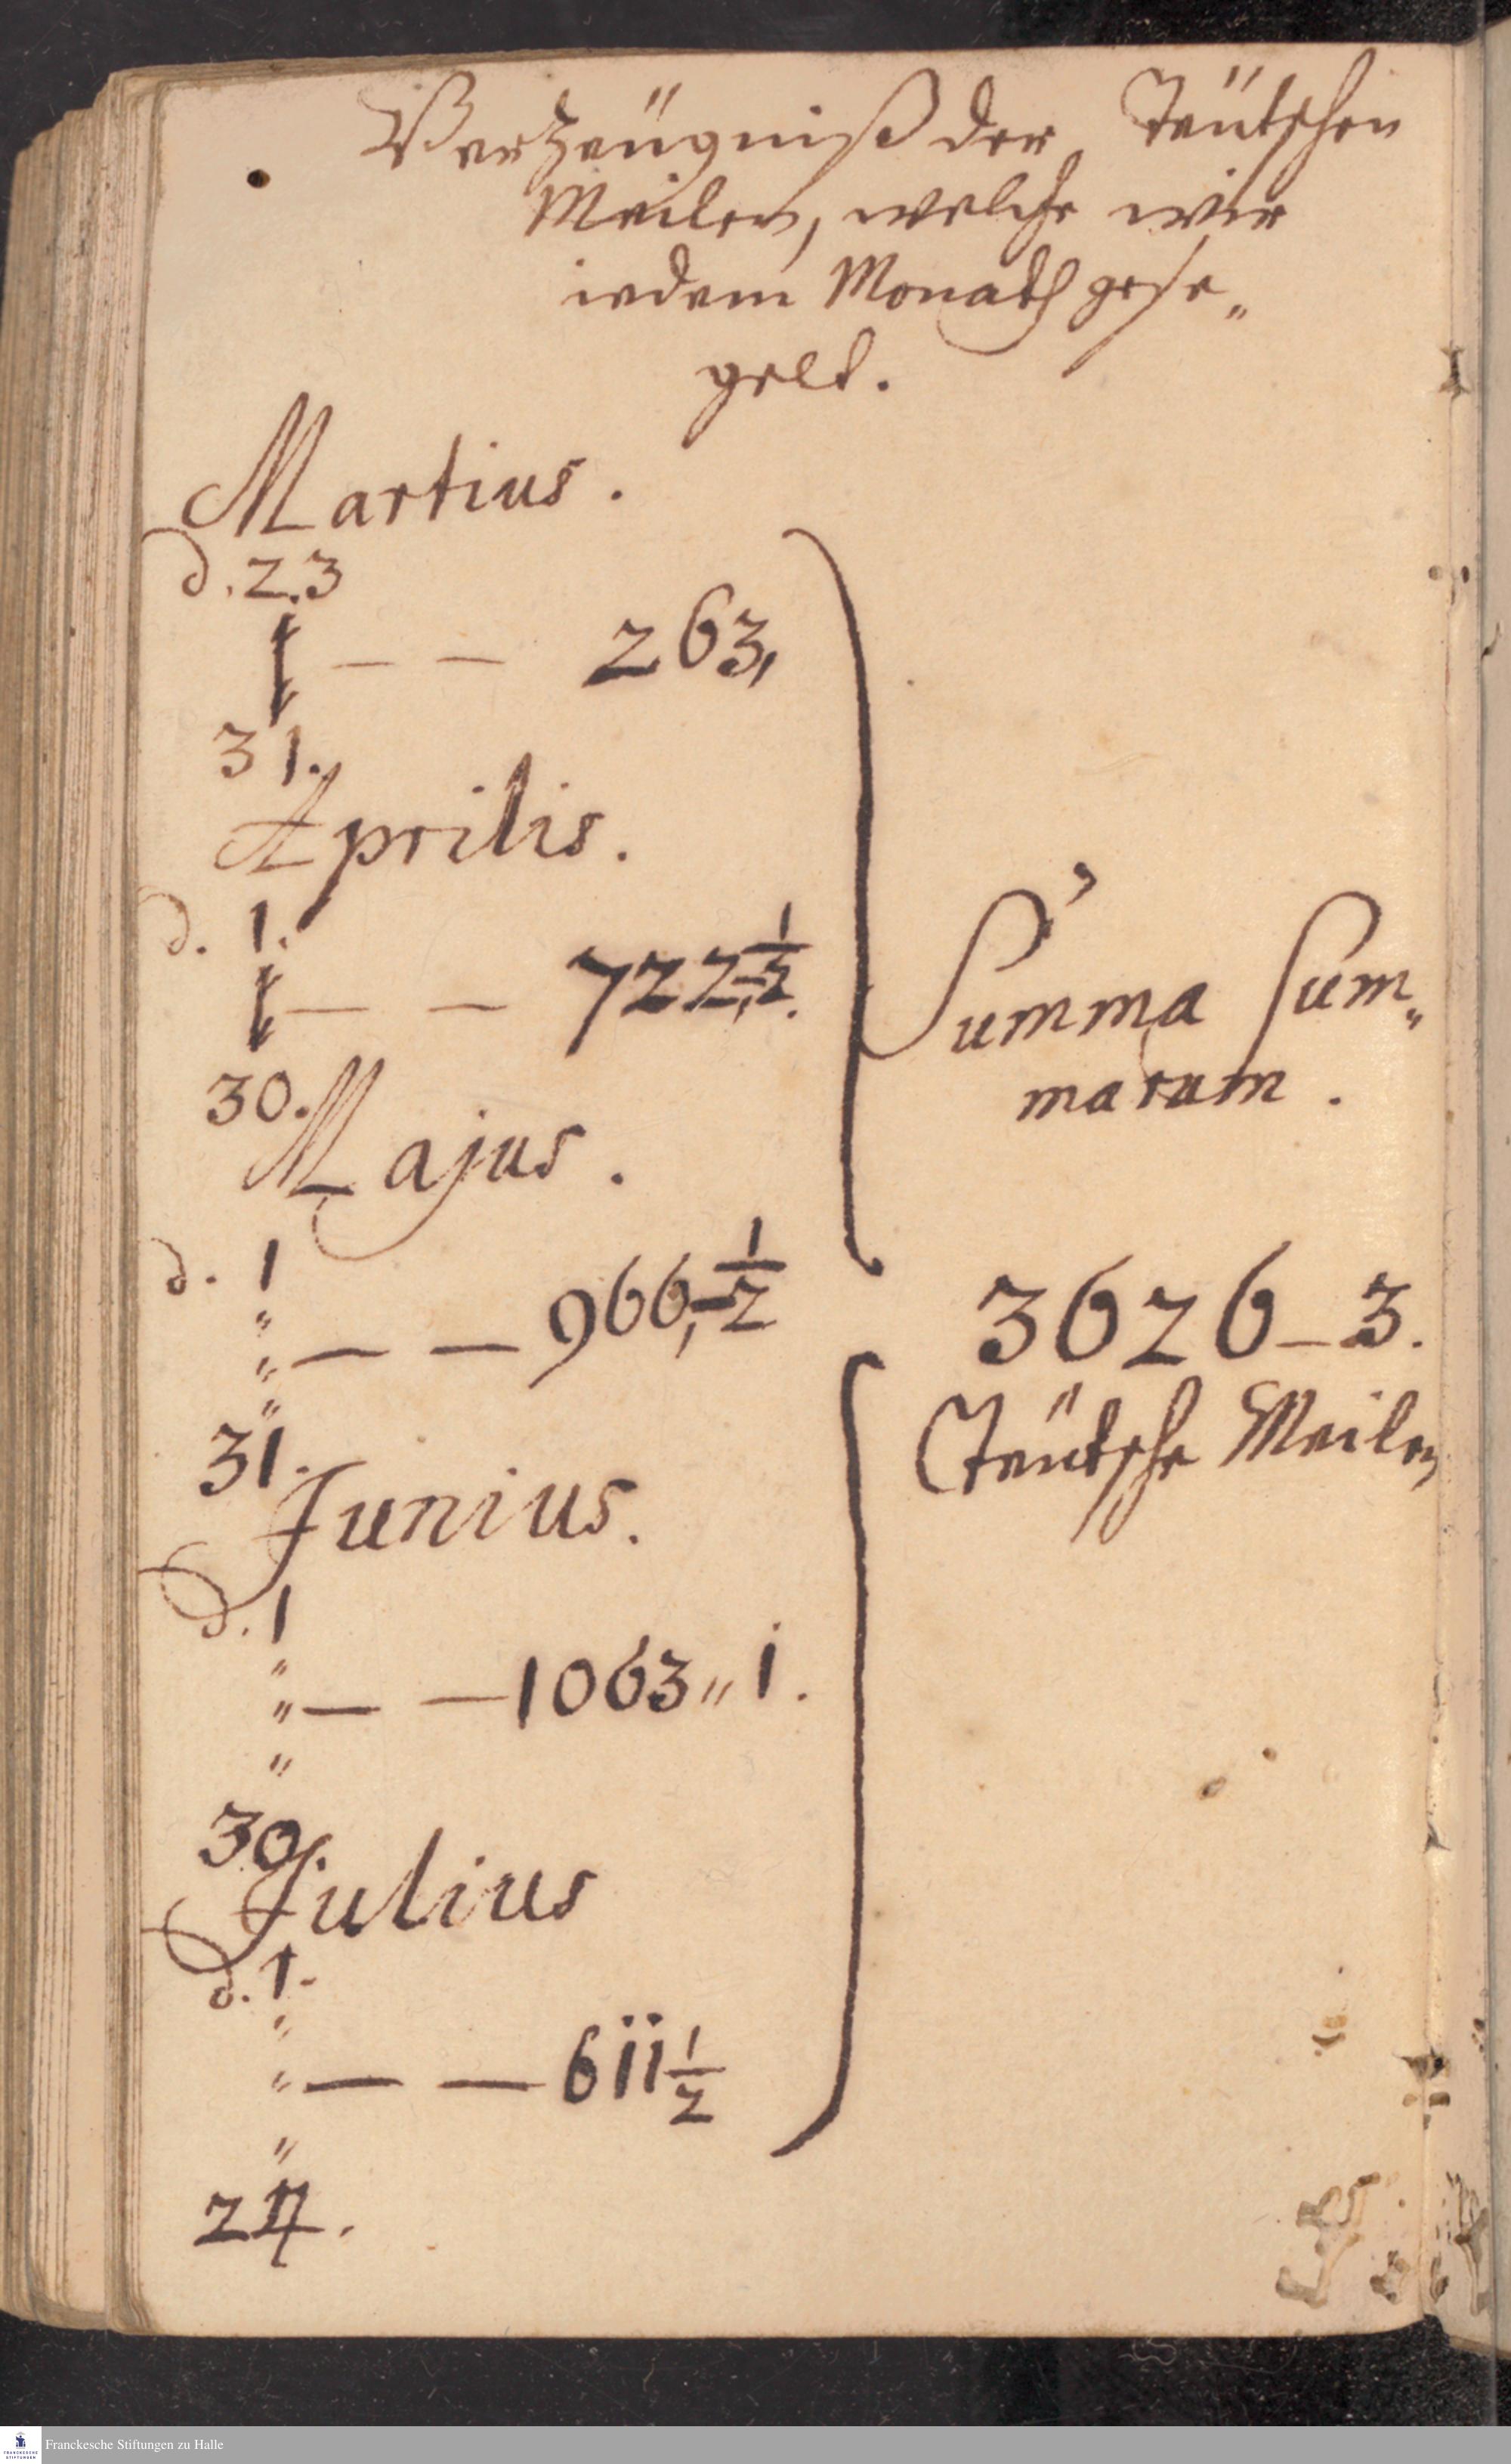 Verzeügniß der Teütschen
Meilen, welche wir
iedem Monath gese„
gelt.
Martius.
d. 23
— — 263,
31.
Aprilis.
d. 1.
— — 722,-1/2.
30.
Majus.
d. 1
„
„ — — 966,-1/2
„
31.
Junius.
d. 1
„
„ — — 1063„ 1.
„
30.
Julius
d. 1.
„
„ — — 611 1/2
„
24.
Summa Sum„
marum.
3626-3.
Teütsche Meilen
Franckesche Stiftungen zu Halle